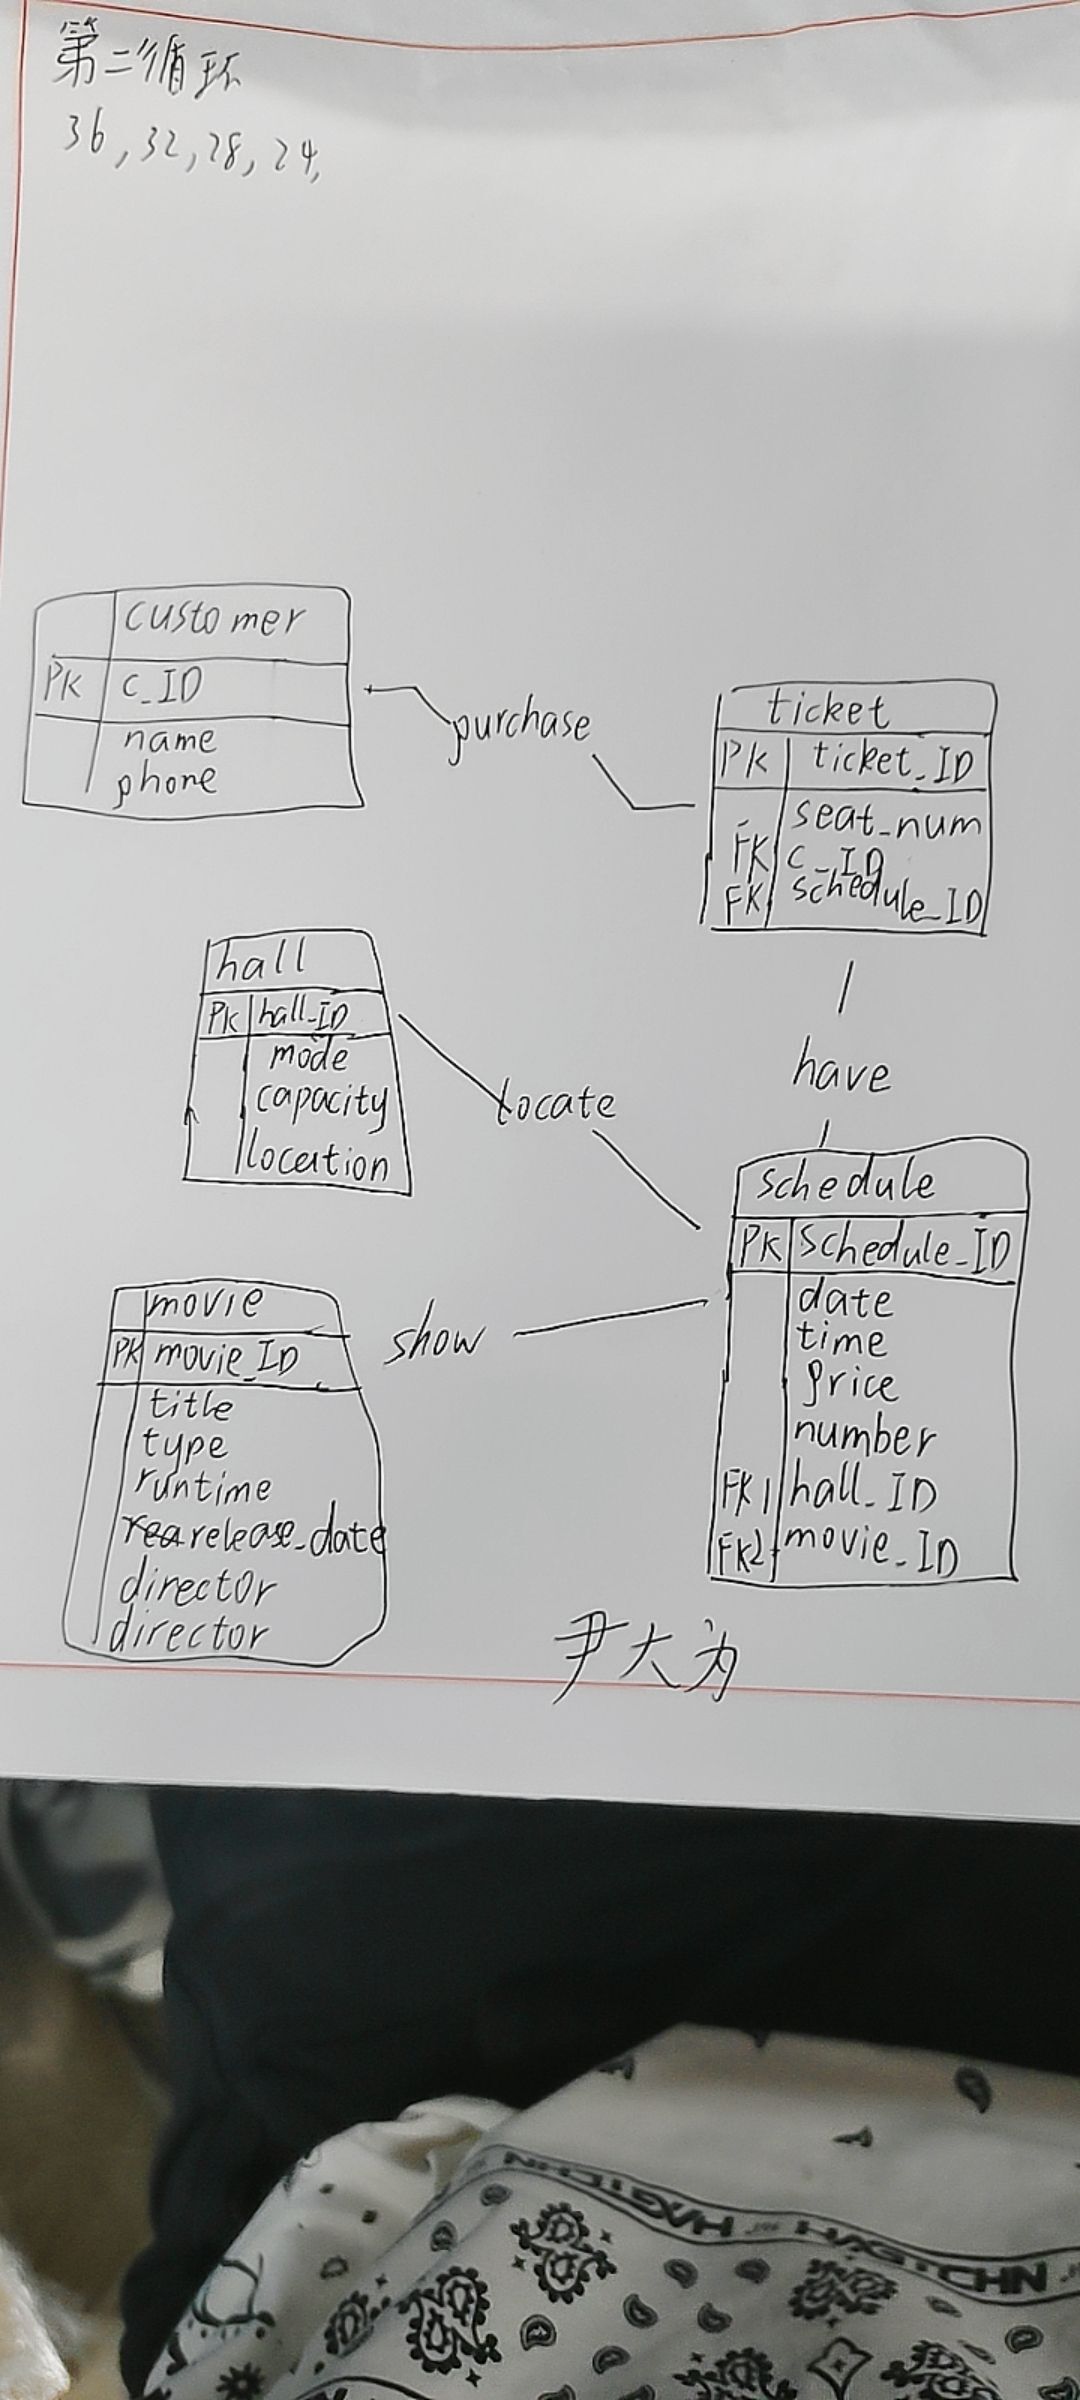 第二循环
36,32,28,24,
customer
PK c_ID
name
phone
purchase
ticket
PK ticket_ID
seat_num
FK c_ID
FK schedule_ID
hall
PK hall_ID
mode
capacity
location
locate
have
schedule
PK schedule_ID
date
time
price
number
FK1 hall_ID
FK2 movie_ID
movie
PK movie_ID
title
type
runtime
release_date
director
director
show
尹大为